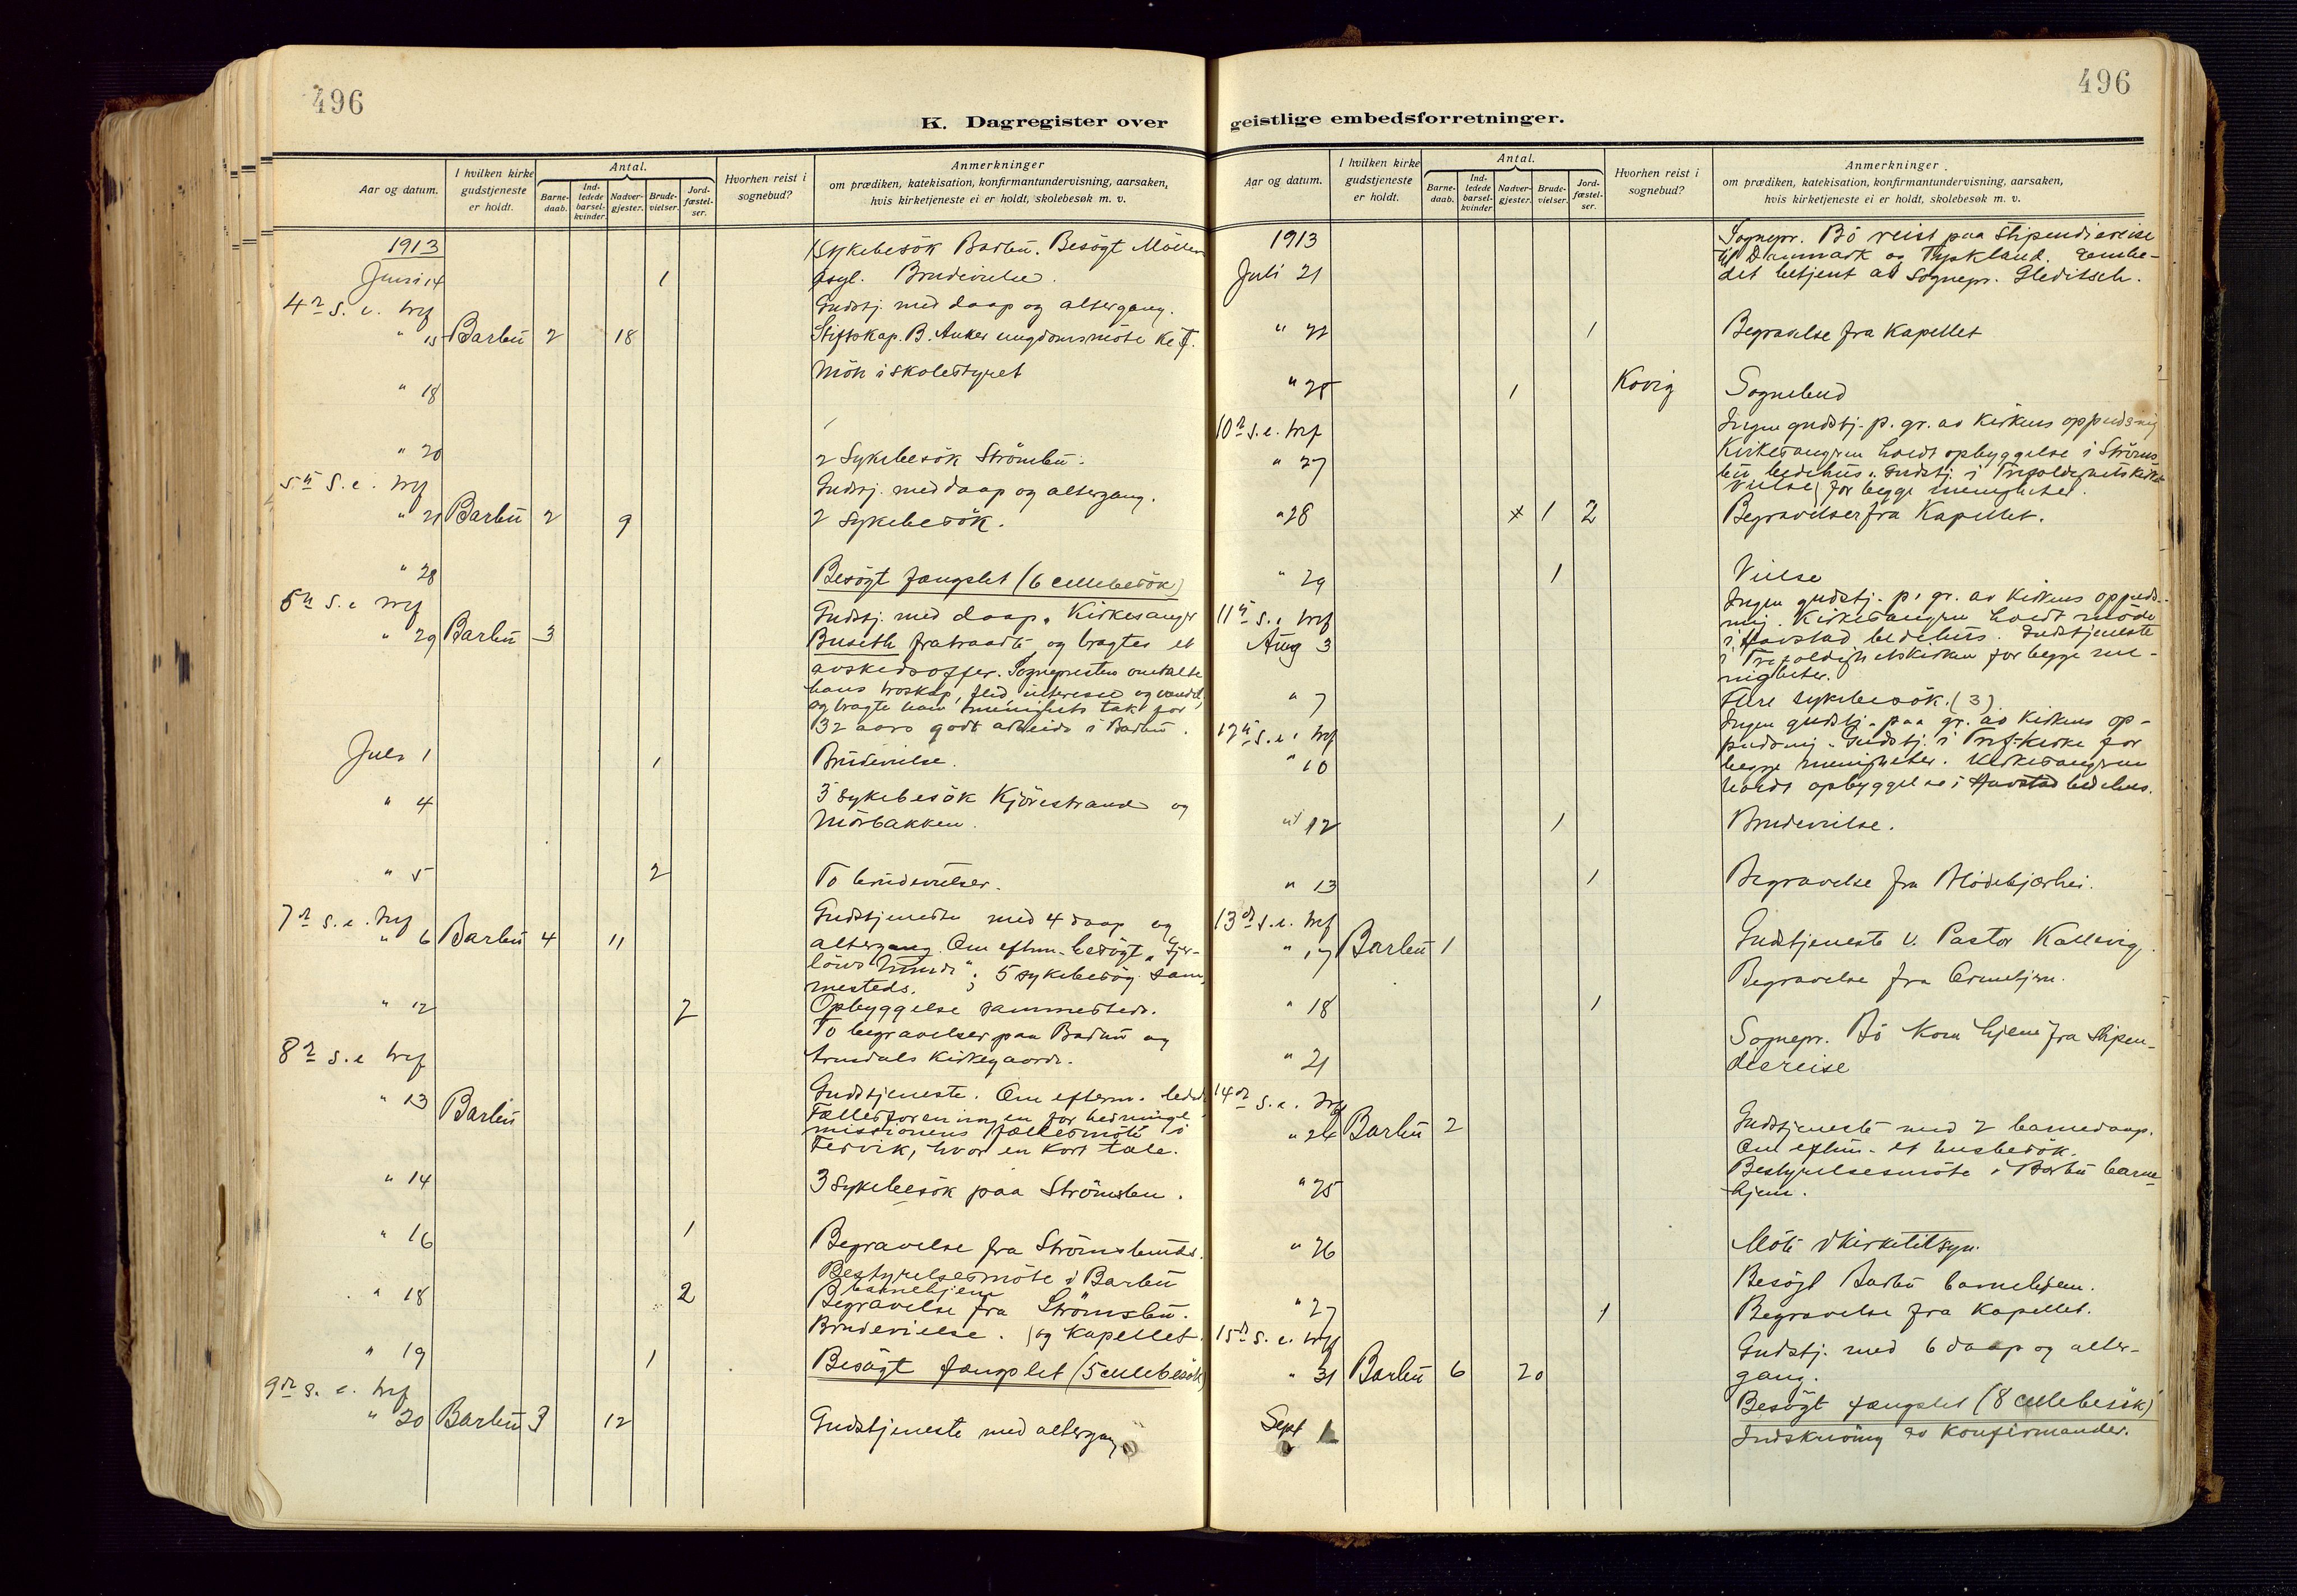 496
K. Dagregister over
Aar og datum.
I hvilken kirke gudstjeneste er holdt.
Antal.
Barne-daab.
Ind-ledede barsel-kvinder.
Nadver-gjester.
Brude-vielser.
Jord-fæstel-ser.
Hvorhen reist i sognebud?
Anmerkninger
om prædiken, katekisation, konfirmantundervisning, aarsaken,
hvis kirketjeneste ei er holdt, skolebesøk m. v.
1913
1 Sykebesök Barbu. Besögt
Juni 14 1 asyl. Brudevielse.
4de S. e. trf
Gudstj. med daap og altergang.
" 15 Barbu 2 18 Stiftskap. B. Anker ungdomsmöte
" 18 Möte i skolestyret
" 20 2 Sykebesök Strömsbu.
5te S. e. trf
Gudstj. med daap og altergang.
" 21 Barbu 2 9 2 Sykebesök.
" 28 Besögt fængslet (6 cellebesök)
6te S. e trf
Gudstj. med daap. Kirkesanger
" 29 Barbu 3 Buseth fratraadte og bragtes et
avskedsoffer. Sognepresten omtalte
hans troskap, flid interesse og
og bragte ham menighets tak for
32 aars godt arbeide i Barbu.
Juli 1 1 Brudevielse.
" 4 3 Sykebesök Kjörestrand og
Mörbakken.
" 5 2 To brudevielser.
7de S. e. trf
Gudstjeneste med 4 daap og
" 6 Barbu 4 11 altergang. Om efterm. besögt
5 sykebesög sam-
mesteds.
" 12 2 Opbyggelse sammesteds.
To begravelser paa Barbu og
8de S. e trf
Arendals kirkegaarde.
" 13 Barbu Gudstjeneste. Om efterm.
Fællesforeningen for hedninge-
missionens fællesmöte i
Fervik, hvor en kort tale.
" 14 3 Sykebesök paa Strömsbu.
" 16 1 Begravelse fra Strömsbu
Bestyrelsesmöte i Barbu
barnehjem
" 18 2 Begravelse fra Strömsbu.
Brudevielse. (og Kapellet.
" 19 1 Besögt fængslet (5 cellebesök)
9de S. e. trf
" 20 Barbu 3 12 Gudstjeneste med altergang
496
geistlige embedsforretninger.
Aar og datum.
I hvilken kirke gudstjeneste er holdt.
Antal.
Barne-daab.
Ind-ledede barsel-kvinder.
Nadver-gjester.
Brude-vielser.
Jord-fæstel-ser.
Hvorhen reist i sognebud?
Anmerkninger
om prædiken, katekisation, konfirmantundervisning, aarsaken,
hvis kirketjeneste ei er holdt, skolebesøk m. v.
1913
Sognepr. Bö reist paa Stipendiereise
til Danmark og Tyskland. Embe-
Juli 21 det betjent av Sognepr. Gleditsch.
" 22 1 Begravelse fra Kapellet
" 25 1 Kovig Sognebud
10de S. e. trf
Ingen gudstj. p. gr. av kirkens oppudsning
" 27 Kirkesangeren holdt opbyggelse i Ströms-
bu bedehus. Gudstj. i Trefoldighetskirken
for begge menigheter.
Vielse
" 28 1 2 Begravelser fra Kapellet.
" 29 1 Vielse
11te S. e. trf
Ingen gudstj. p. gr. av kirkens oppuds-
ning. Kirkesangeren holdt möde
Aug 3 i Havstad bedehus. Gudstjeneste
i Trefoldighetskirken for begge me-
nigheter.
" 7 Flere sykebesök. (3)
12te S. e. trf
Ingen gudstj. paa gr. av kirkens op-
pudsning. Gudstj. i Tref-kirke for
" 10 begge menigheter. Kirkesangeren
holdt opbyggelse i Havstad bedehus.
" 12 1 Brudevielse.
" 13 1 Begravelse fra Blödekjærhei.
13de S. e. trf
" 17 Barbu 1 Gudstjeneste v. Pastor Kallevig.
" 18 1 Begravelse fra
" 21 Sognepr. Bö kom hjem fra stipen-
diereise
14de S. e. trf
" 24 Barbu 2 Gudstjeneste med 2 barnedaap.
Om efterm. et husbesök.
" 25 Bestyrelsesmöte i Barbu barne-
hjem.
" 26 Möte i kirketilsyn.
Besögt Barbu barnehjem.
" 27 1 Begravelse fra Kapellet.
15de S. e. trf
Gudstj. med 6 daap og alter-
" 31 Barbu 6 20 gang.
Besögt fængslet (8 cellebesök)
Sept 1 Indskrivning av Konfirmander.